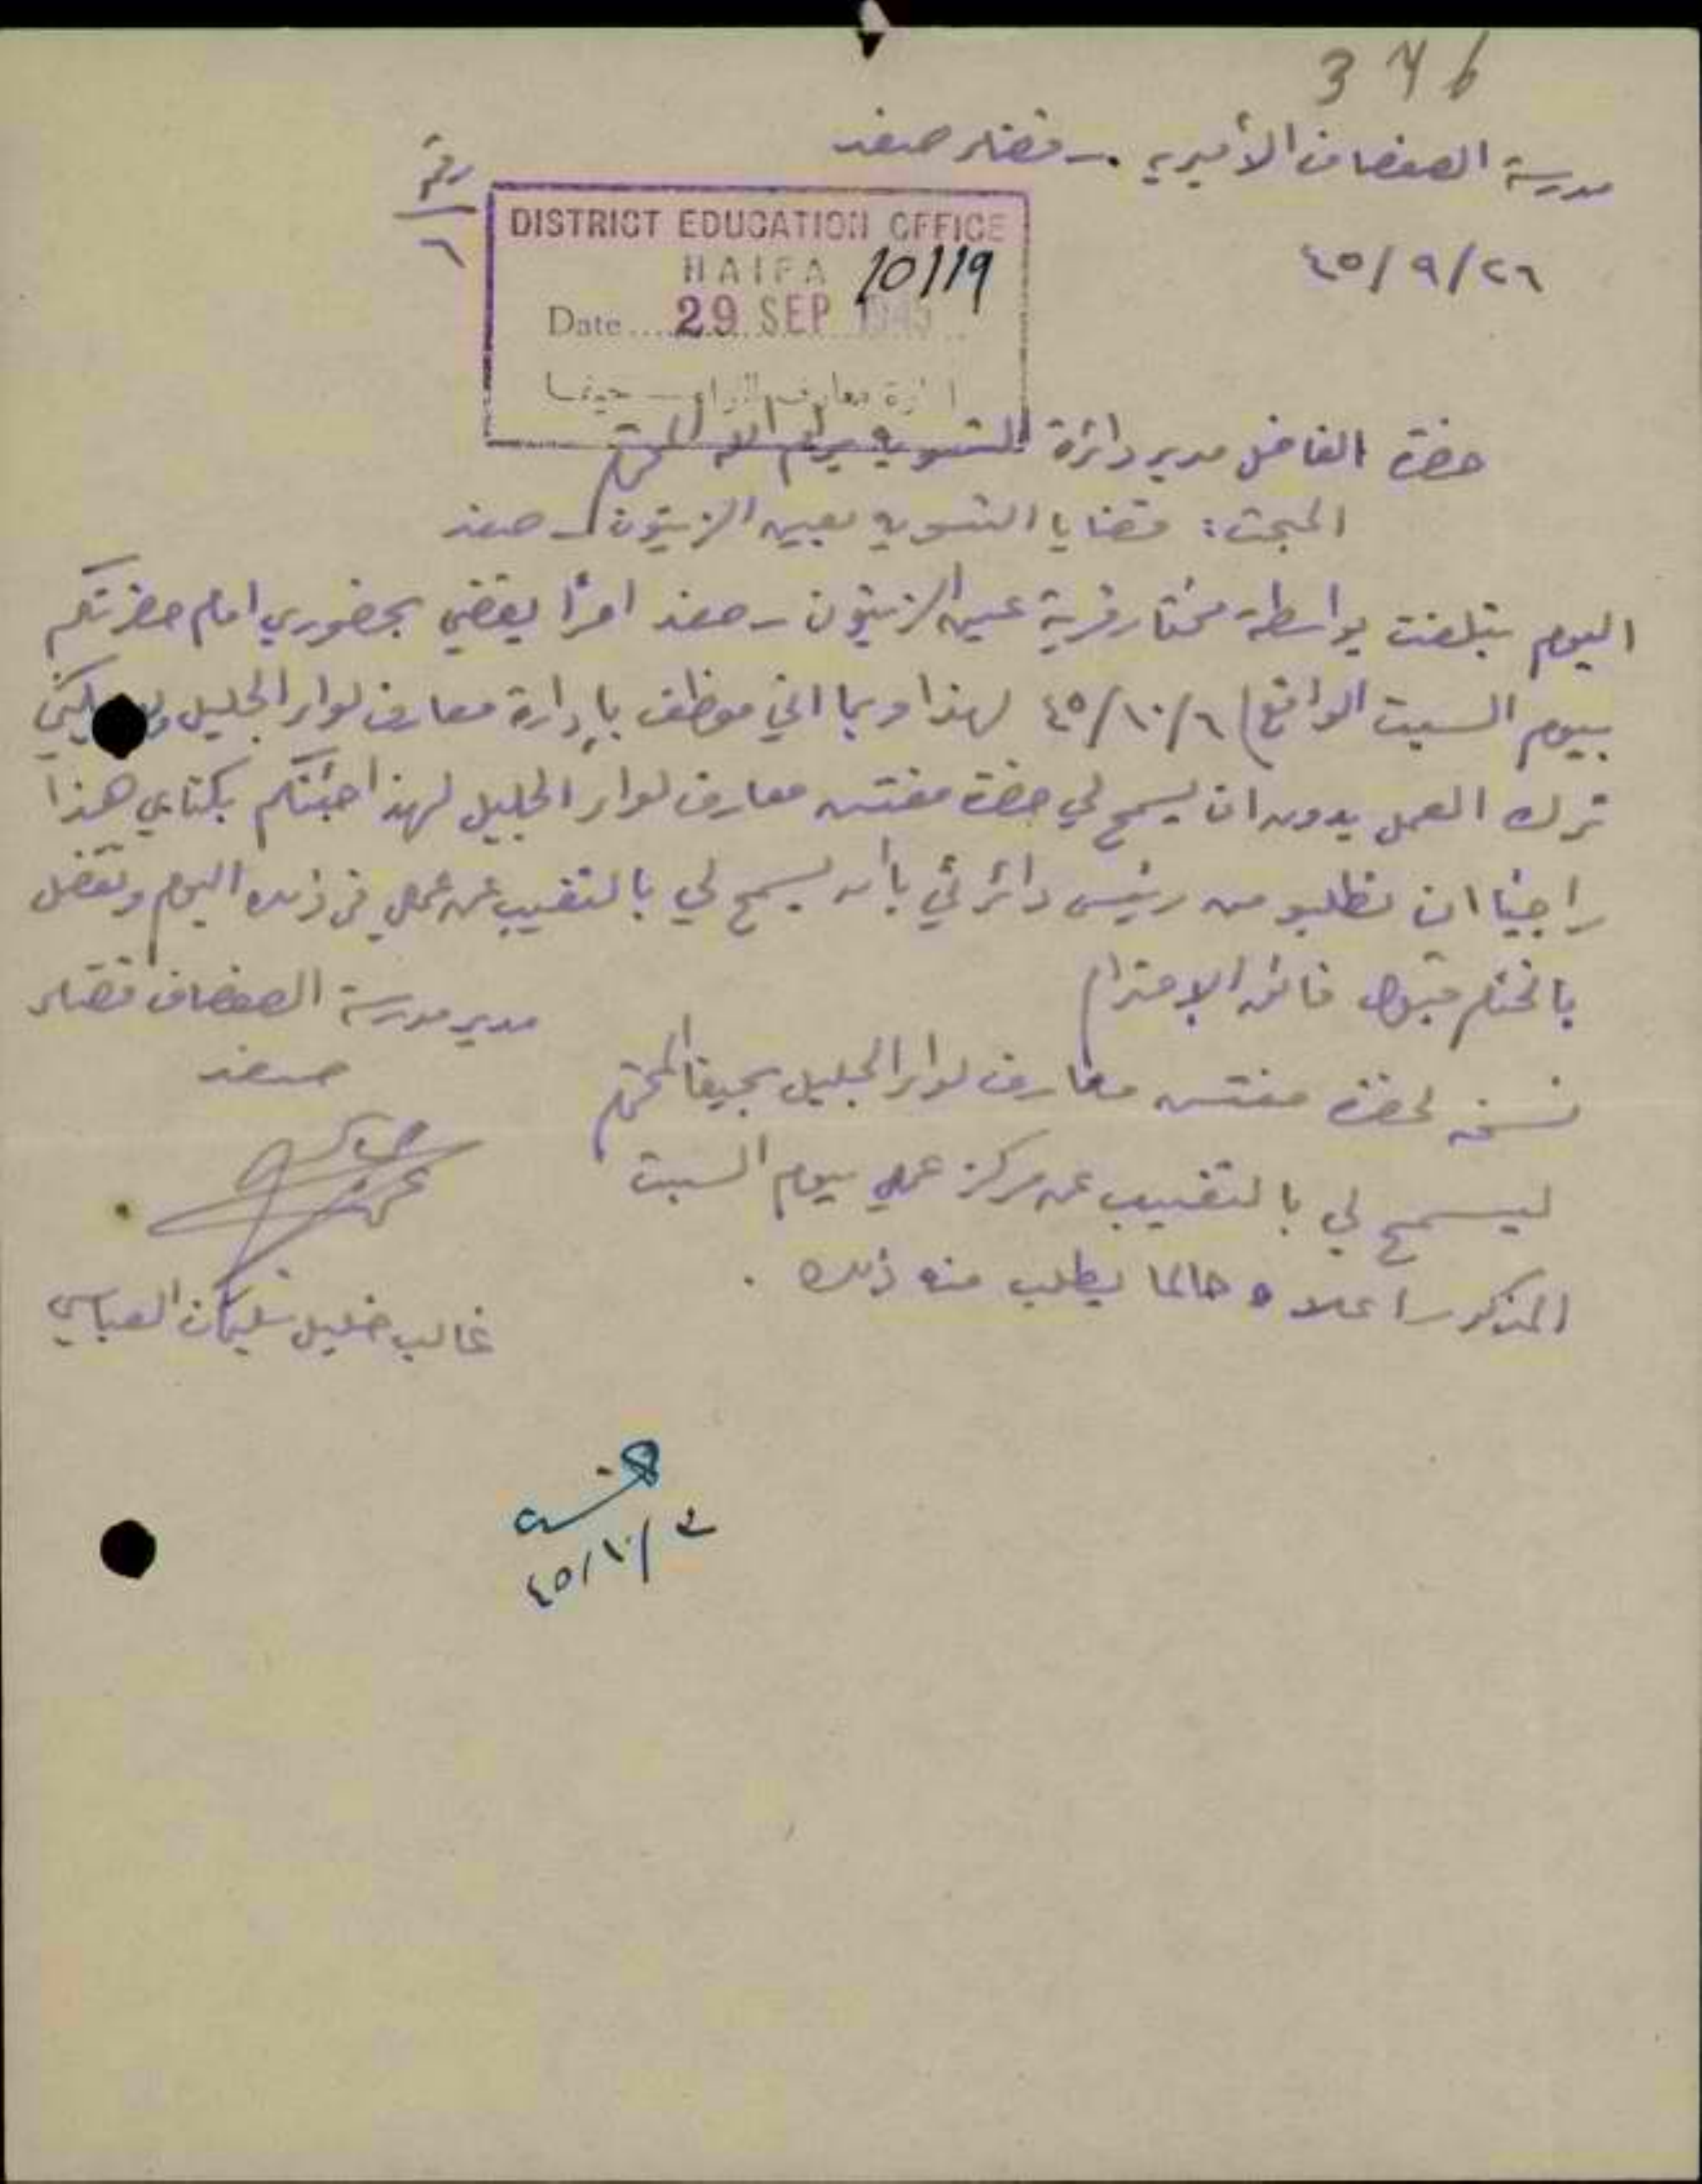 376
مدرسة الصفصاف الأميرية - قضاء صفد
رقم
٦
٤٥/٩/٢٦
DISTRICT EDUCATION OFFICE
HAIFA 10/19
Date 29 SEP 1945
ادارة معارف اللواء - حيفا
حضرة الفاضل مدير دائرة التسوية المحترم
المبحث: قضايا التسوية بعين الزيتون - صفد
اليوم تبلغت بواسطة مختار قرية عين الزيتون - صفد امرًا يقضي بحضوري امام حضرتكم
بيوم السبت الواقع ٤٥/١٠/٦ لهذا وبما اني موظف بإدارة معارف لواء الجليل ولا يمكنني
ترك العمل بدون ان يسمح لي حضرة مفتش معارف لواء الجليل لهذا جئتكم بكتابي هذا
راجيًا ان تطلبو من رئيس دائرتي بأن يسمح لي بالتغيب عن عملي في ذلك اليوم وتفضل
بالختام قبول فائق الإحترام
مدير مدرسة الصفصاف قضاء
صفد
نسخة لحضرة مفتش معارف لواء الجليل بحيفا المحترم
ليسمح لي بالتغيب عن مركز عملي بيوم السبت
المذكور اعلاه حالما يطلب منه ذلك .
غالب خليل سليمان العباسي
٤٥/١٠/٢